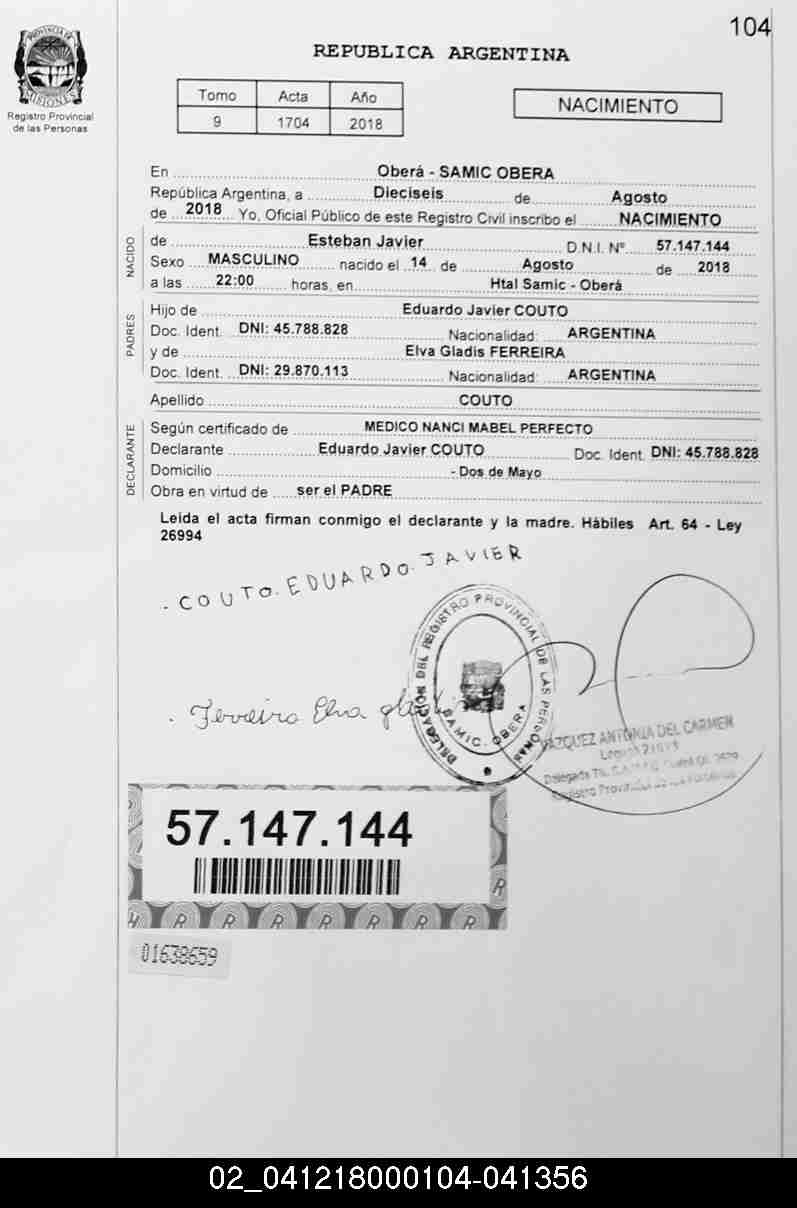 104
PROVINCIA DE
MISIONES
Registro Provincial
de las Personas
REPUBLICA ARGENTINA
Tomo Acta Año
9 1704 2018
NACIMIENTO
En Oberá - SAMIC OBERA
República Argentina, a Dieciseis de Agosto
de 2018 Yo, Oficial Público de este Registro Civil inscribo el NACIMIENTO
NACIDO
de Esteban Javier D.N.I. Nº 57.147.144
Sexo MASCULINO nacido el 14 de Agosto de 2018
a las 22:00 horas, en Htal Samic - Oberá
PADRES
Hijo de Eduardo Javier COUTO
Doc. Ident. DNI: 45.788.828 Nacionalidad: ARGENTINA
y de Elva Gladis FERREIRA
Doc. Ident. DNI: 29.870.113 Nacionalidad: ARGENTINA
Apellido COUTO
DECLARANTE
Según certificado de MEDICO NANCI MABEL PERFECTO
Declarante Eduardo Javier COUTO Doc. Ident. DNI: 45.788.828
Domicilio - Dos de Mayo
Obra en virtud de ser el PADRE
Leida el acta firman conmigo el declarante y la madre. Hábiles Art. 64 - Ley
26994
. COUTO. EDUARDO. JAVIER
DELEGACIÓN DEL REGISTRO PROVINCIAL DE LAS PERSONAS
SAMIC. OBERA
. Ferreira Elva
VAZQUEZ ANTONIA DEL CARMEN
57.147.144
R R R R R R R R
01638659
02_041218000104-041356